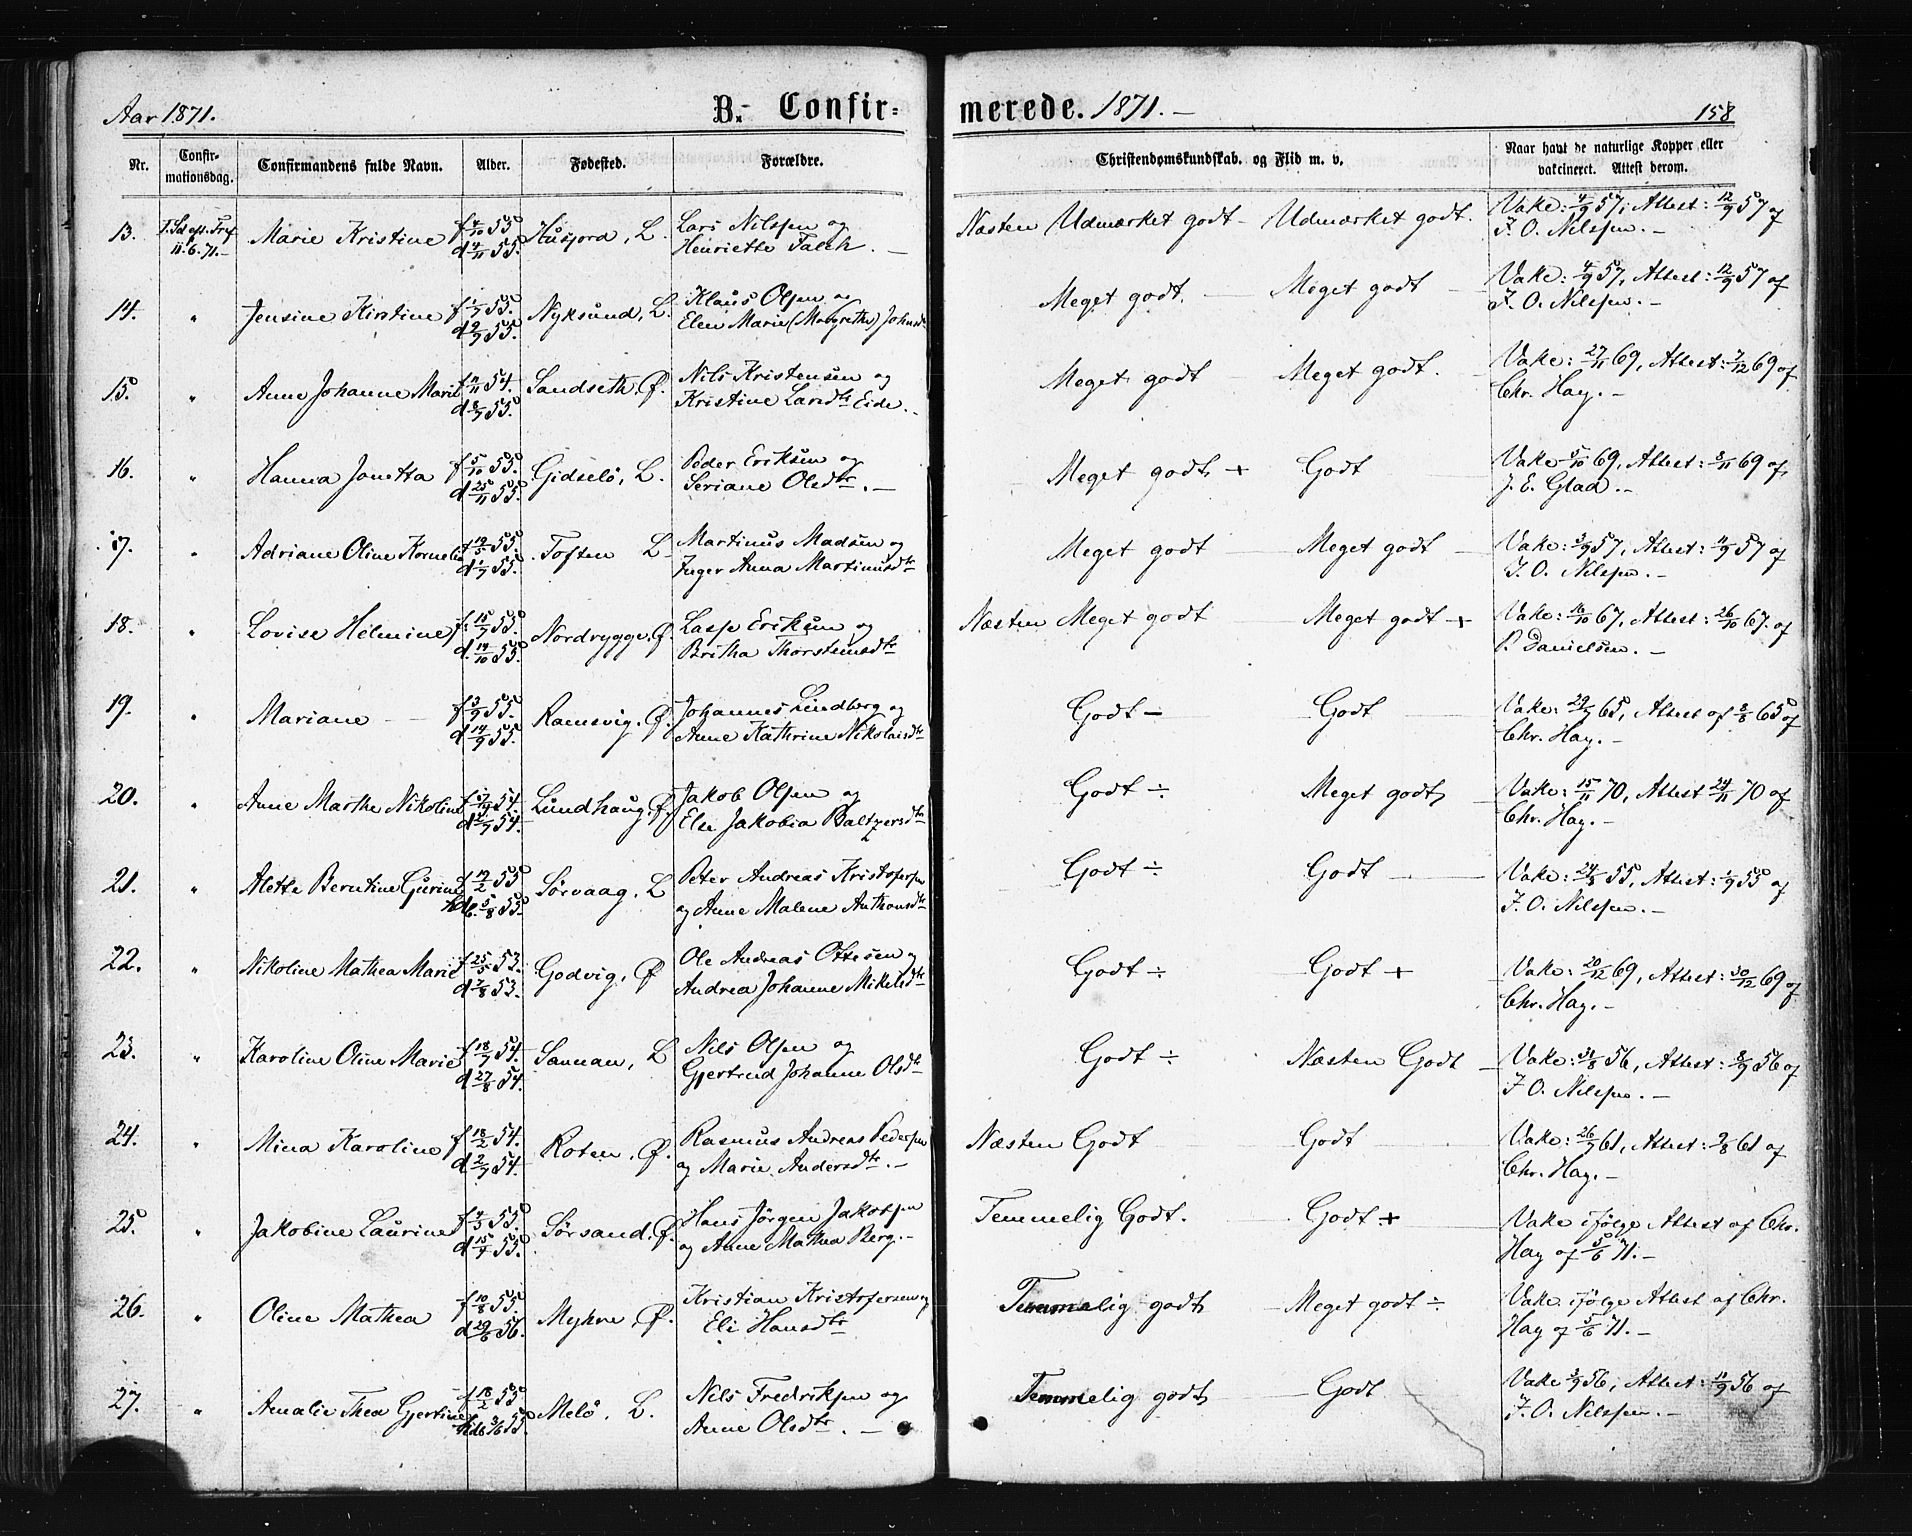 Aar 1871. B. Confir= merede. 1871. — 158
Nr. Confir-mationsdag. Confirmandens fulde Navn. Alder. Fødested. Forældre. Christendomskundskab. og Flid m. v. Naar havt de naturlige Kopper eller vakcineret. Attest derom.
13. 11.6.71.— Marie Kristine f 4/10 55 Husjord, L. Lars Nilssen og Næsten Udmærket godt — Udmærket godt. Vake: 4/9 57, Attest: 12/9 57 af
d 4/11 55. Henriette Falch. — J. O. Nilssen. —
14. " Jensine Kirstine f 1/7 55. Nyksund, L. Klaus Olsen og Meget godt. — Meget godt — Vake: 4/9 57, Attest: 12/9 57 af
d 2/9 55. Elen Marie (Margrethe) Johnsdtr J. O. Nilssen. —
15. " Anne Johanne Marit f 11/11 54. Sandseth, Ø. Nils Kristensen og Meget godt Meget godt. Vake: 27/11 69, Attest: 7/12 69 af
d 8/7 55. Kristine Larsdtr Eide. — Chr. Hay. —
16. " Hanna Jonetta f 5/10 55. Gidselö, L. Peder Eriksen og Meget godt + Godt Vake 5/10 69, Attest: 8/11 69 af
d 25/11 55. Seriane Olsdtr. — J. E. Glad. —
17. " Adriane Oline Kornelia f 19/5 55. Toften L. Martinus Madsen og Meget godt Meget godt — Vake: 3/9 57, Attest: 11/9 57 af
d 1/7 55. Inger Anna Martinusdtr J. O. Nilssen. —
18. " Lovise Helmine f. 15/7 55. Nordrygge, Ø Lasse Eriksen og Næsten Meget godt Meget godt + Vake: 16/10 67, Attest: 26/10 67. af
d. 14/10 55. Britha Thorstensdtr P. Danielsen. —
19. " Mariane — f 3/9 55. Ramsvig, Ø. Johannes Lindberg og Godt — Godt Vake: 29/7 65, Attest af 8/8 65 af
d 14/9 55. Anne Kathrine Nikolaisdtr Chr. Hay. —
20. " Anne Marthe Nikoline 54. Lundhaug, Ø. Jakob Olsen og Godt ÷ Meget godt Vake: 15/11 70, Attest 24/11 70 af
d 2/7 54. Else Jakobia Baltzersdtr Chr. Hay. —
21. " Alette Berntine Gurine f 19/2 55 Sørvaag, L Peter Andreas Kristofersen Godt ÷ Godt Vake: 24/8 55, Attest: 1/9 55 af
5/8 55. og Anne Malene Anthonsdtr J. O. Nilssen. —
22. " Nikoline Mathea Marie f 25/5 53. Godvig, Ø Ole Andreas Ottesen og Godt ÷ Godt + Vake: 20/12 69, Attest: 30/12 69 af
d 7/8 53. Andrea Johanne Mikelsdtr Chr. Hay. —
23. " Karoline Oline Marie f 18/7 54. Sannan, L Nils Olsen og Godt ÷ Næsten Godt — Vake: 31/8 56, Attest: 8/9 56 af
d 27/8 54. Gjertrud Johanne Olsdtr J. O. Nilssen. —
24. " Mina Karoline f 18/2 54. Roten, Ø. Rasmus Andreas Pedersen Næsten Godt Godt Vake: 26/7 61, Attest: 2/8 61 af
d 2/7 54. og Marie Andersdtr. — Chr. Hay. —
25. " Jakobine Laurine f 4/3 55. Sørsand, Ø. Hans Jörgen Jakobsen Temmelig Godt. Godt + Vake ifølge Attest af Chr.
d 15/7 55. og Anne Mathea Berg. — Hay af 5/6 71. —
26. " Oline Mathea f 10/8 55. Myhre, Ø. Kristian Kristofersen og Temmelig godt — Meget godt ÷ Vake. ifølge Attest af Chr.
d 29/6 56. Eli Hansdtr Hay af 5/6 71. —
27. " Amalie Thea Gjertine f 18/2 55 Melö, L. Nils Fredriksen og Temmelig godt — Godt Vake 3/9 56, Attest: 11/9 56 af
3/6 55. Anne Olsdtr. — J. O. Nilssen. —